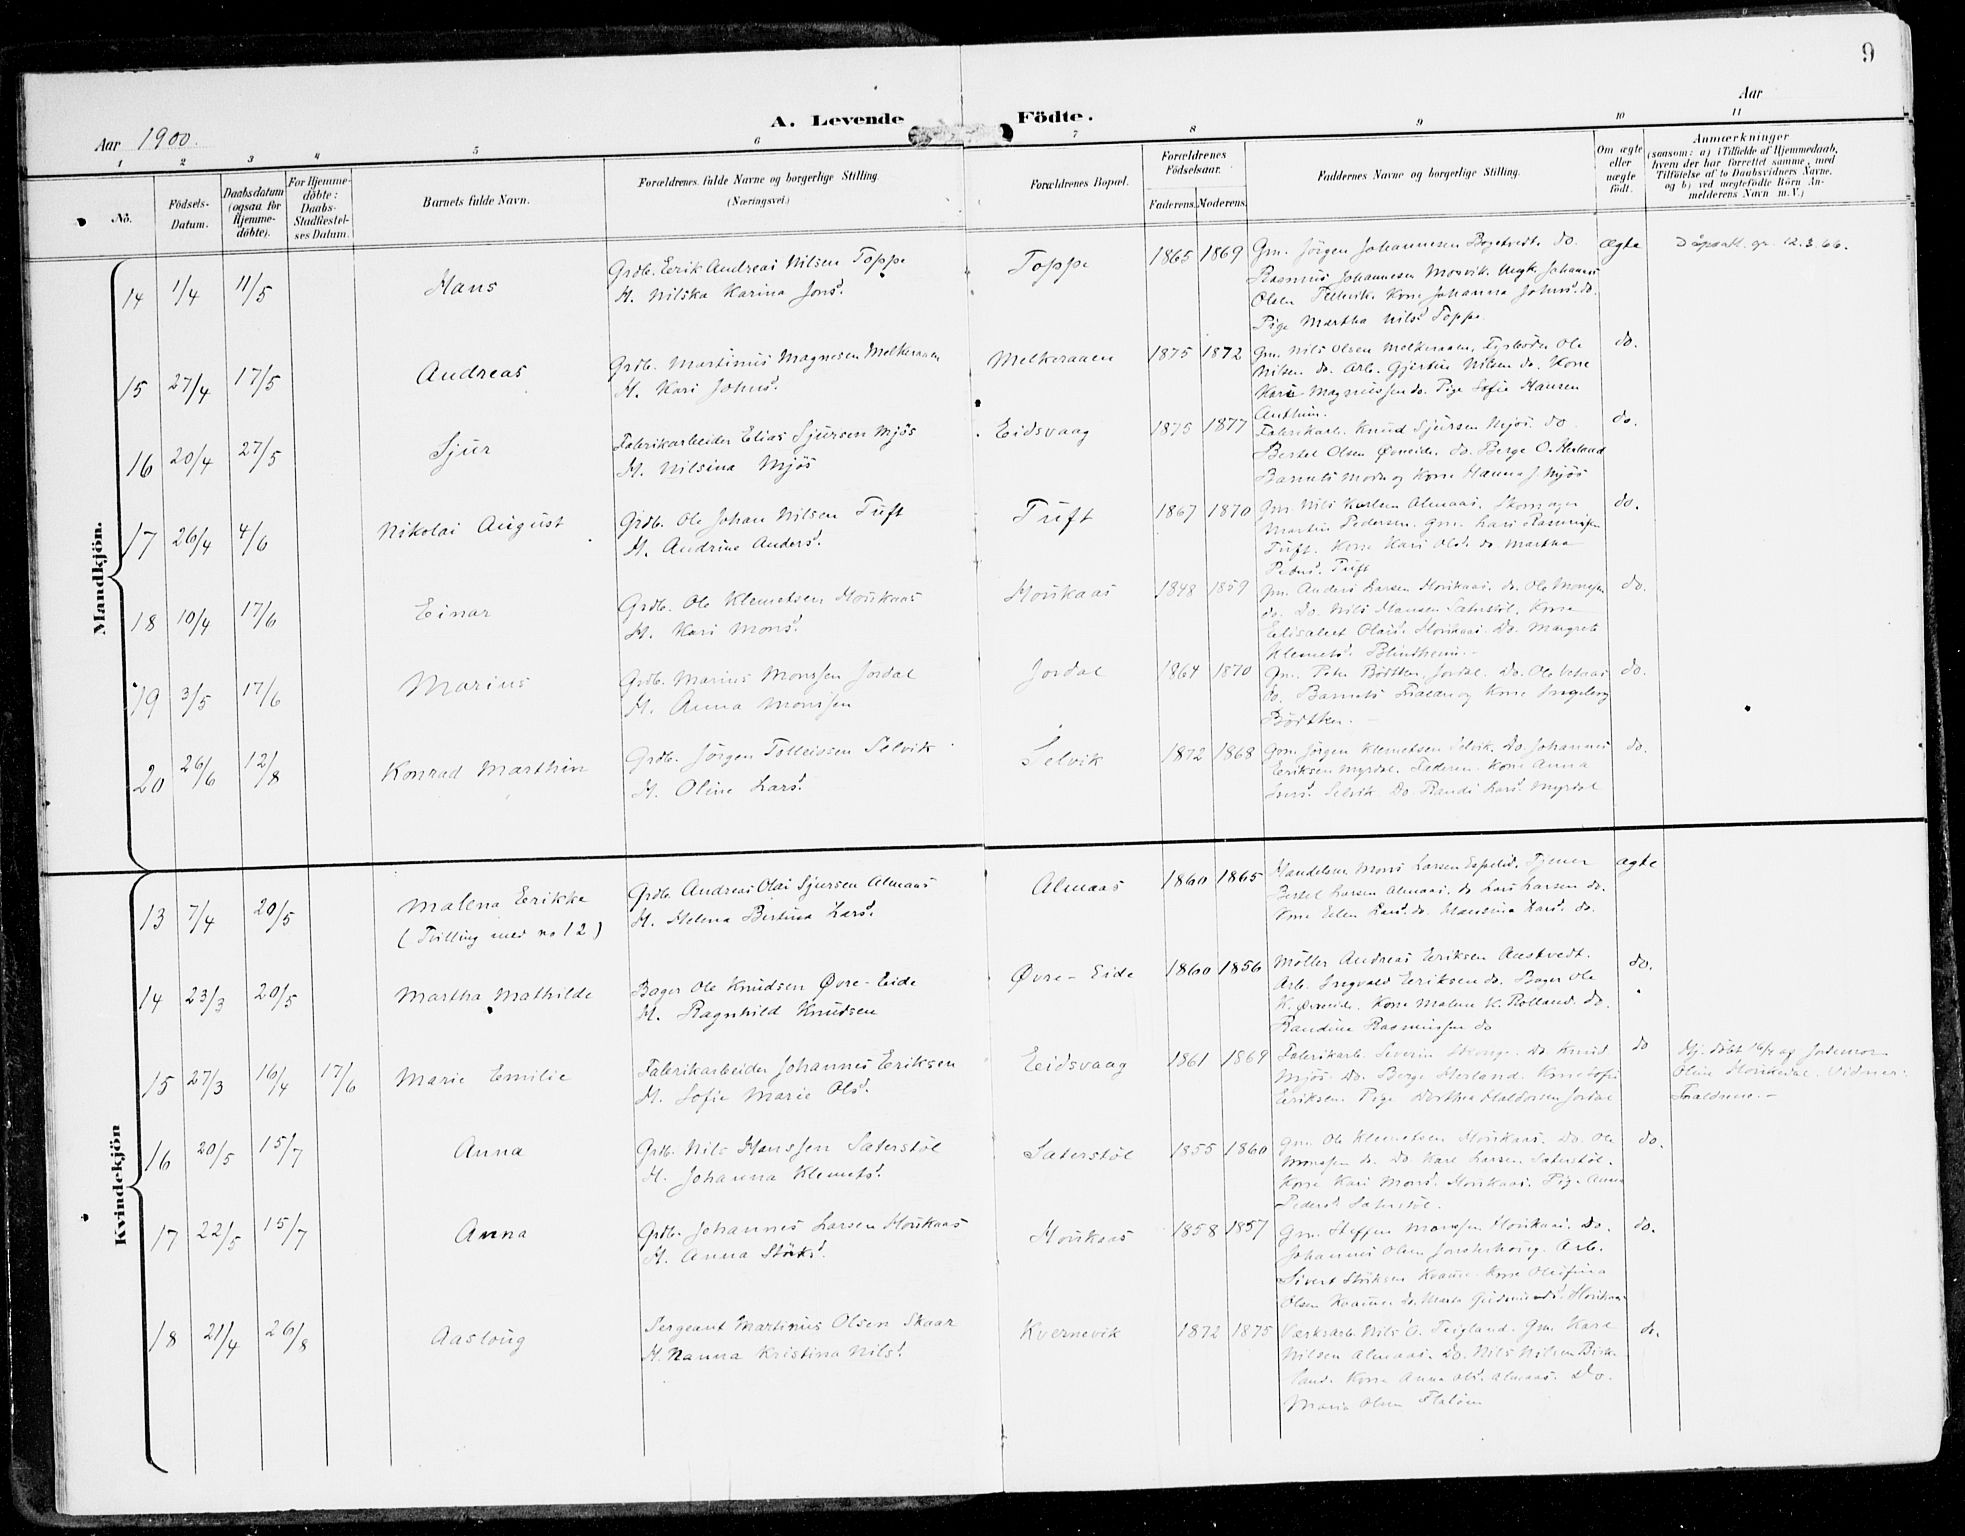 9
Aar 1900.
A. Levende Födte.
Aar
1 2 3 4 5 6 7 8 9 10 11
No.
Födsels-Datum.
Daabsdatum (ogsaa for Hjemme-döbte).
For Hjemme-döbte: Daabs-Stadfæstel-ses Datum.
Barnets fulde Navn.
Forældrenes fulde Navne og borgerlige Stilling. (Næringsvei.)
Forældrenes Bopæl.
Forældrenes Födselsaar.
Faderens. Moderens.
Faddernes Navne og borgerlige Stilling.
Om ægte eller uægte födt.
Anmærkninger
(saasom: a) i Tilfælde af Hjemmedaab,
hvem der har forrettet samme, med
Tilföielse af to Daabsvidners Navne,
og b) ved uægtefödte Börn An-
melderens Navn m. V.)
Mandkjön.
14 1/4 11/5 Hans
Grdb. Erik Andreas Nilsen Toppe
H. Nilska Karina Jonsd.
Toppe 1865 1869
Gm. Jörgen Johannesen Do.
Rasmus Johannesen Morvik. Ungk. Johannes
Olsen Kone Johanna Johnsd. do.
Pige Martha Nilsd. Toppe
ægte
12.3.66.
15 27/4 17/5 Andreas
Grdb. Martinus Magnesen Melkeraaen
H. Kari Johnsd.
Melkeraaen 1875 1872
Gm. Nils Olsen Melkeraaen, Ole
Nilsen do. Arb. Gjertin Nilsen do. Kone
Kari Magnussen do. Pige Sofie Hansen
do.
16 20/4 27/5 Sjur
Fabrikarbeider Elias Sjursen Mjös
H. Nilsina Mjös
Eidsvaag 1875 1877
Fabrikarb. Knud Sjursen Mjös. do.
Bertel Olsen Øvreeide. do. Berge O. Herland
Barnets Moder og Kone Hanna J. Mjös
do.
17 26/4 4/6 Nikolai August
Grdb. Ole Johan Nilsen Tuft
H. Andrine Andersd.
Tuft 1867 1870
Gm. Nils Karlsen Almaas. Skomager
Martin Pedersen. Gm. Lars Rasmussen
Tuft. Kone Kari Olsd. do. Martha
Pedersd. Tuft
do.
18 10/4 17/6 Einar
Grdb. Ole Klemetsen Houkaas
H. Kari Monsd.
Houkaas 1848 1859
Gm. Anders Larsen Houkaas. do. Ole Monssen
do. Do. Nils Hansen Sæterstöl. Kone
Elisabet Olsd. Houkaas. Do. Margrete
Klemetsd. Blindheim.
do.
19 3/5 17/6 Marius
Grdb. Marius Monssen Jordal
H. Anna Monssen
Jordal 1864 1870
Gm. Peter Jordal. Do. Ole
do. Barnets Fader og Kone Ingeborg
do.
20 26/6 12/8 Konrad Marthin
Grdb. Jörgen Tolleivsen Selvik
H. Oline Larsd.
Selvik 1872 1868
Gm. Jörgen Klemetsen Selvik. Do. Johannes
Eriksen Myrdal. Faderen. Kone Anna
Selvik. Do. Randi Larsd. Myrdal
do.
Kvindekjön
13 7/4 20/5 Malena Erikke
(Tvilling med no 12)
Grdb. Andreas Olai Sjursen Almaas
H. Helena Bertina Larsd.
Almaas 1860 1865
Mons Larsen Espelid. Tjener
Bertel Larsen Almaas. do Lars Larsen do.
Kone Elen Larsd. do. Larsd. do.
ægte
14 23/3 20/5 Martha Mathilde
Bager Ole Knudsen Øvre-Eide
H. Ragnhild Knudsen
Øvre-Eide 1860 1856
Möller Andreas Eriksen Aastvedt.
Arb. Ingvald Eriksen do. Bager Ole
K. Øvreeide. Kone Malene K. Rolland. do.
Randine Rasmussen do
do.
15 27/3 16/4 17/6 Marie Emilie
Fabrikarbeider Johannes Eriksen
H. Sofie Marie Olsd.
Eidsvaag 1861 1869
Fabrikarb. Severin Do. Knud
Mjös. Do. Berge Herland. Kone Sofie
Eriksen. Pige Dorthea Haldorsen Jordal
do
Hj. döbt 16/4 af Jordemor
Oline Vidner:
Forældrene.
16 20/5 15/7 Anna
Grdb. Nils Hanssen Sæterstöl
H. Johanna Klemetsd.
Sæterstöl 1855 1860
Gm. Ole Klemetsen Houkaas. Do. Ole
Monssen do. Do. Karl Larsen Sæterstöl.
Kone Kari Monsd. Houkaas. Pige Anna
Pedersd. Sæterstöl.
do.
17 22/5 15/7 Anna
Grdb. Johannes Larsen Houkaas
H. Anna Störksd.
Houkaas 1858 1857
Gm. Steffen Monssen Houkaas. Do.
Johannes Olsen Arb.
Sivert Störksen Kone
Olsen do. Houkaas
do.
18 21/4 26/8 Aasloug
Sergeant Martinus Olsen Skaar
H. Nanna Kristina Nilsd.
Kvernevik 1872 1875
Værksarb. Nils O. Teigland. Gm. Karl
Nilsen Almaas. Do. Nils Nilsen Birke-
land. Kone Anna Olsd. Almaas. Do.
Maria Olsen
do.